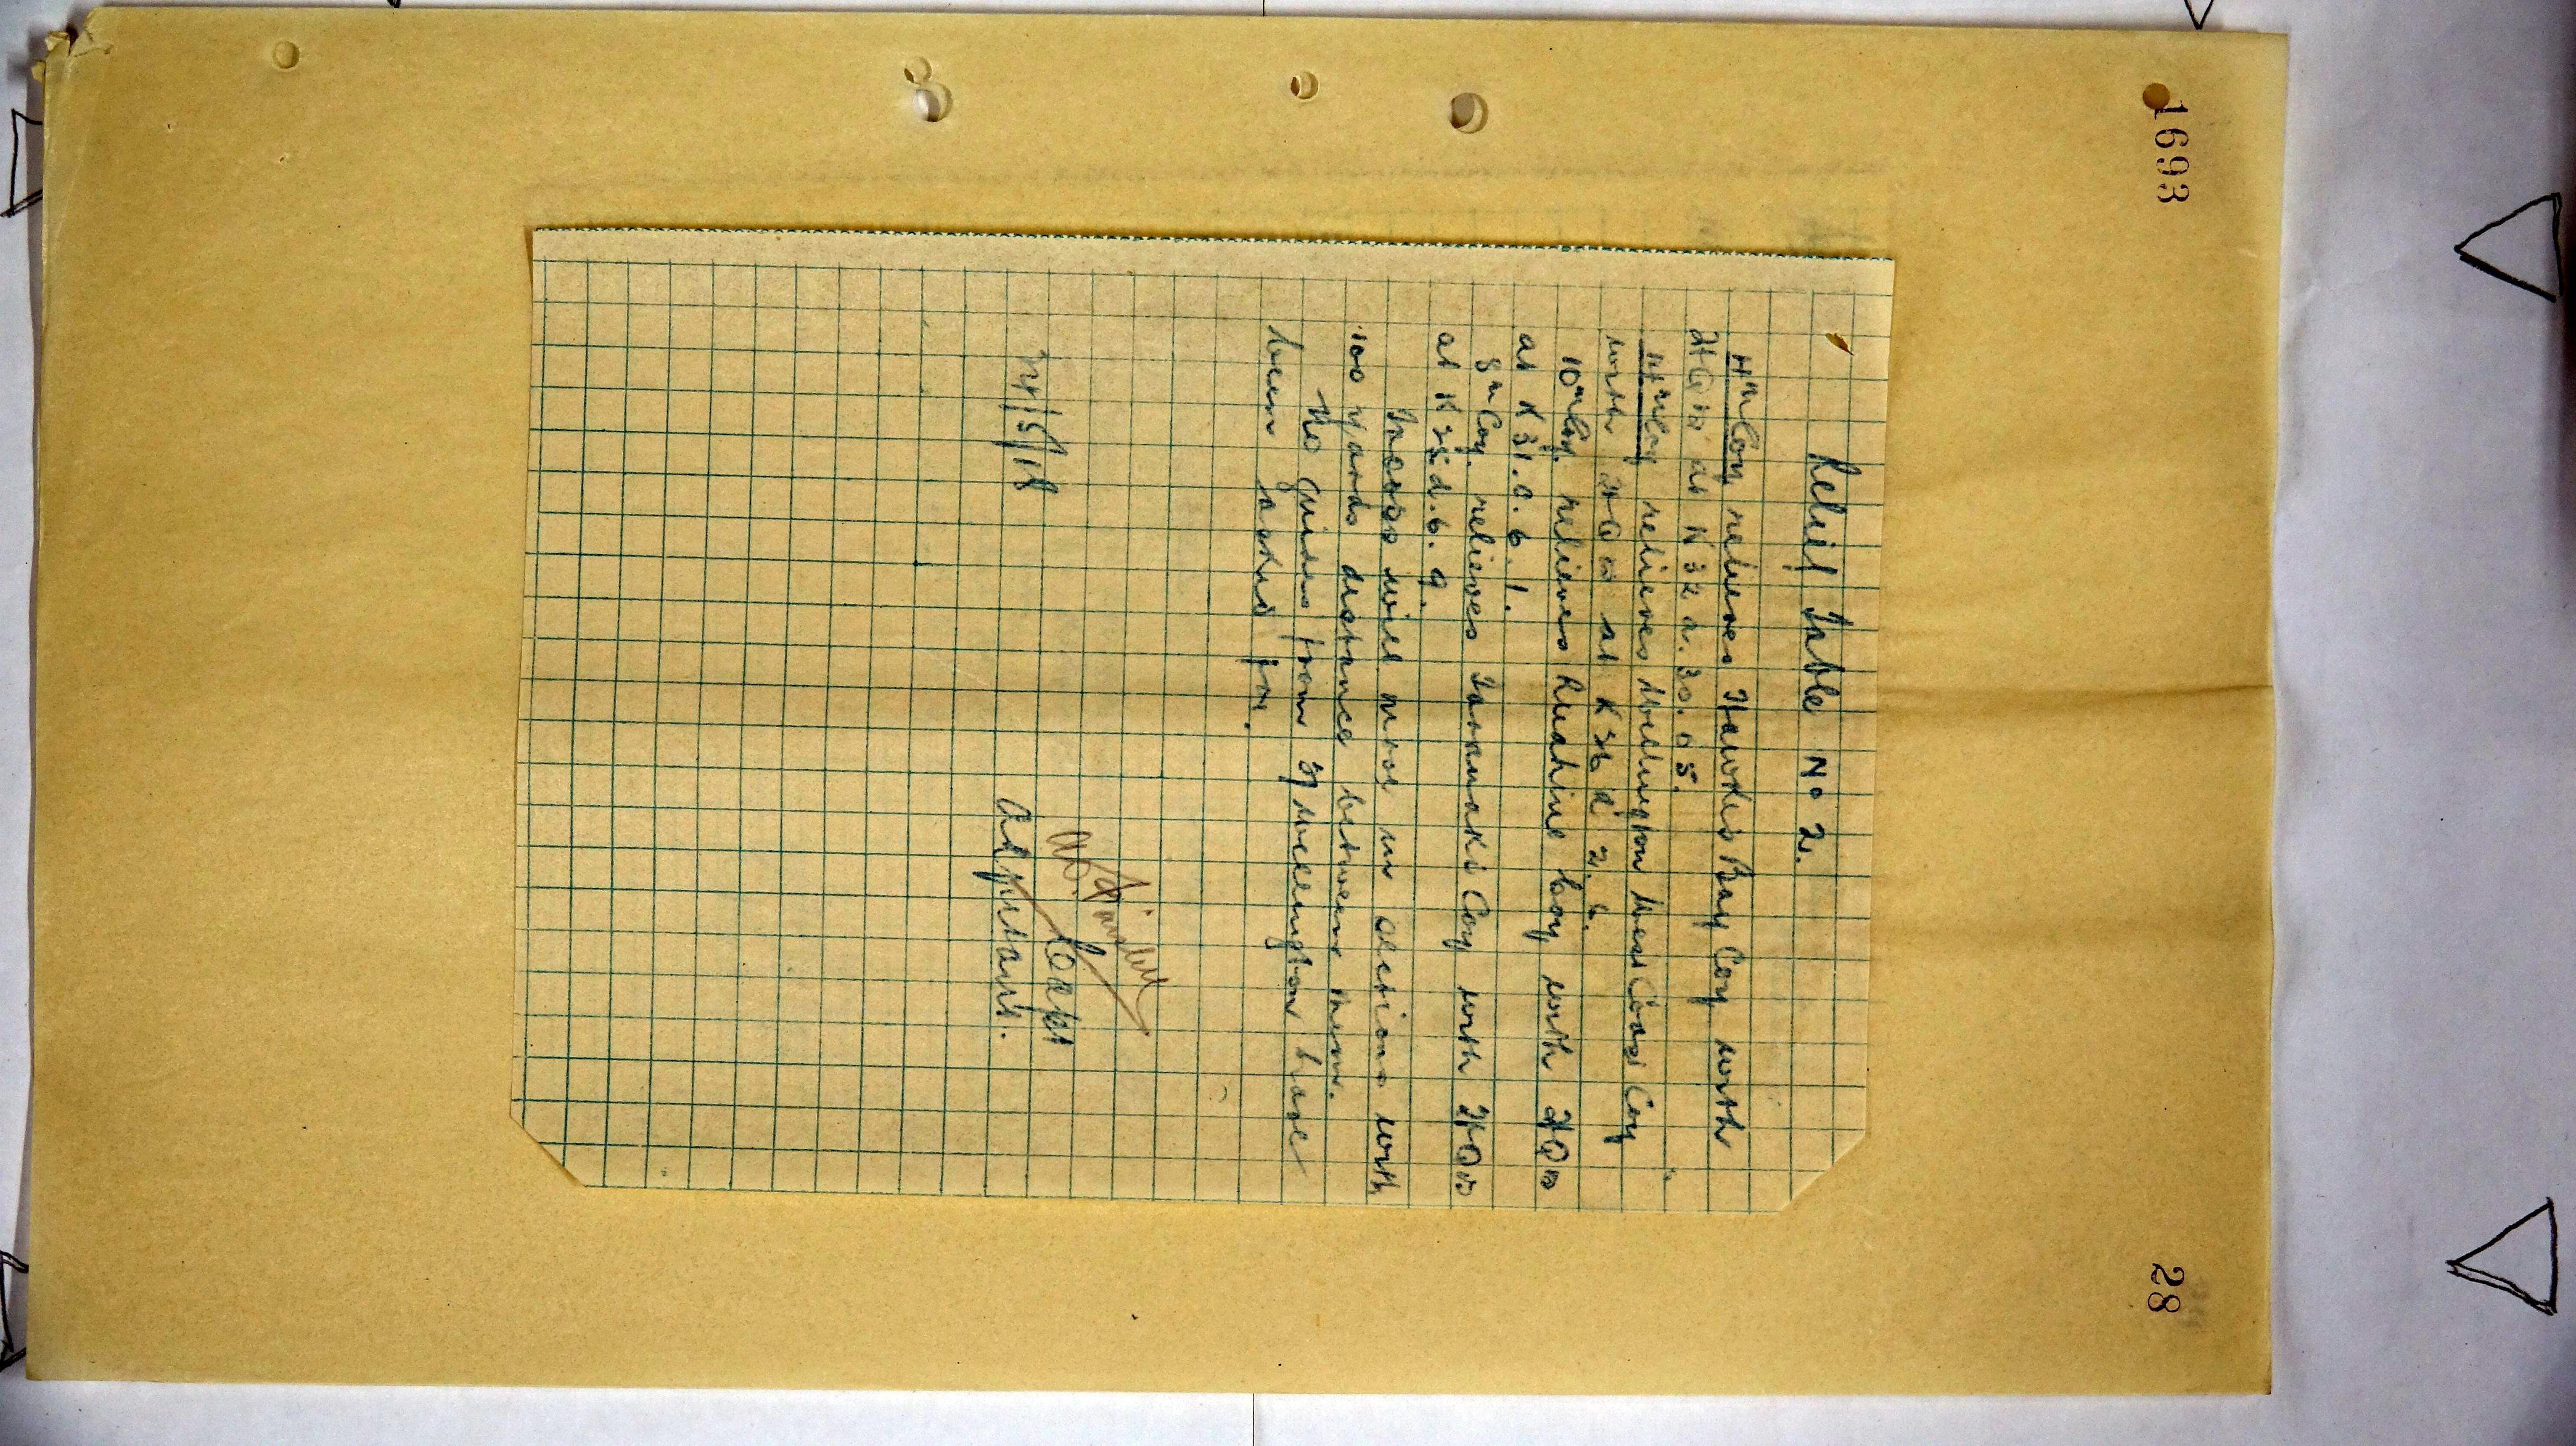 1693
28
Relief Table No 2.
4th Coy relieves Hawkes Bay Coy with
HQrs at K 32 a. 30. 05.
14th Coy relieves Wellington West Coast Coy
with HQrs at K 36 d 2. 6.
10th Coy. relieves Ruahine Coy with HQrs
at K 31. a. 6. 1.
8th Coy. relieves Taranaki Coy with HQrs
at K 35. d. 6. 9.
Troops will move in sections with
100 yards distance between them.
No guides from 3/ Wellington have
been asked for.
Capt
24/5/18 Adjutant.